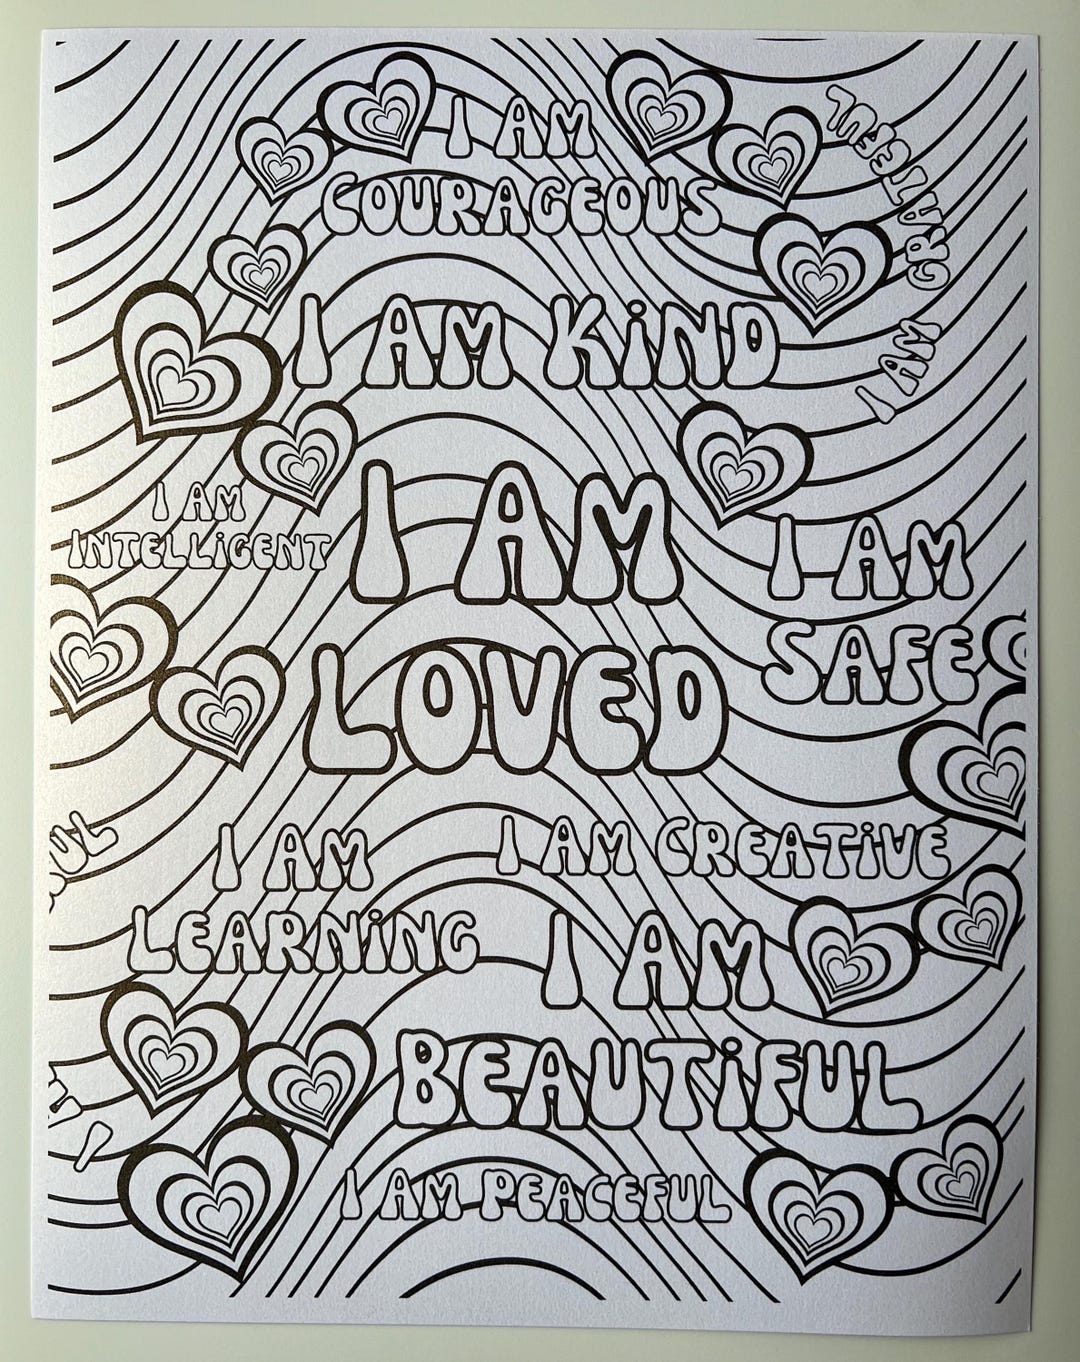 I AM
COURAGEOUS
I AM GRATEFUL
I AM KiND
I AM
INTELLiGENT
I AM
LOVED
I AM
SAFE
I AM
LEARNiNG
I AM CREATiVE
I AM
BEAUTiFUL
I AM PEACEFUL